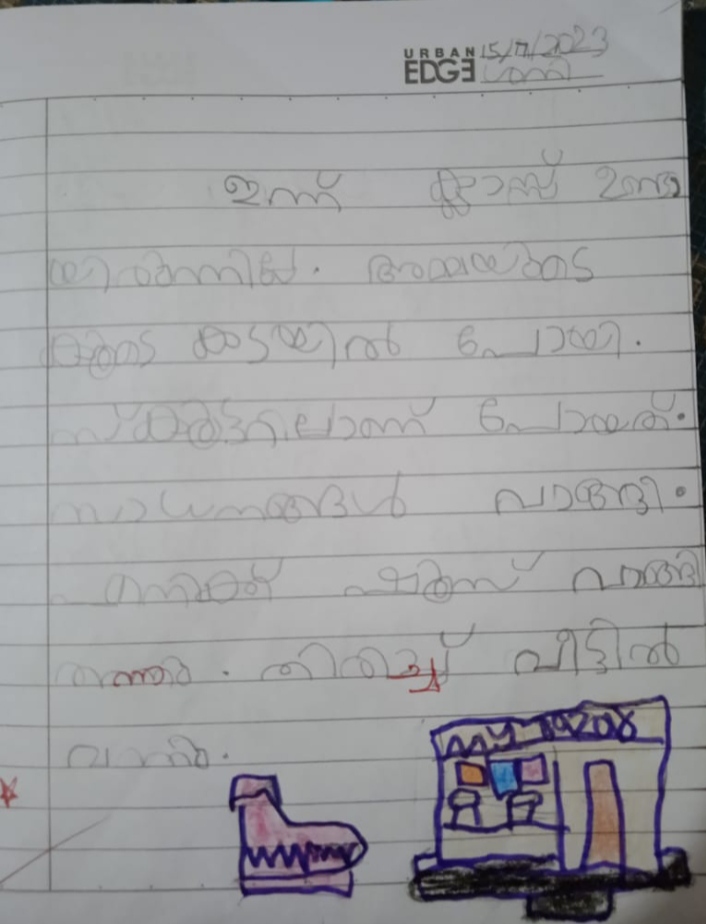 URBAN
EDGE
15/7/2023
ശനി
ഇന്ന് ക്ലാസ്സ് ഉണ്ടാ
യിരുന്നില്ല. അമ്മയുടെ
കൂടെ കടയിൽ പോയി.
സ്കൂട്ടറിലാണ് പോയത്.
സാധനങ്ങൾ വാങ്ങി.
എനിക്ക് ഷൂസ് വാങ്ങി
തന്നു. തിരിച്ച് വീട്ടിൽ
വന്നു.
MY